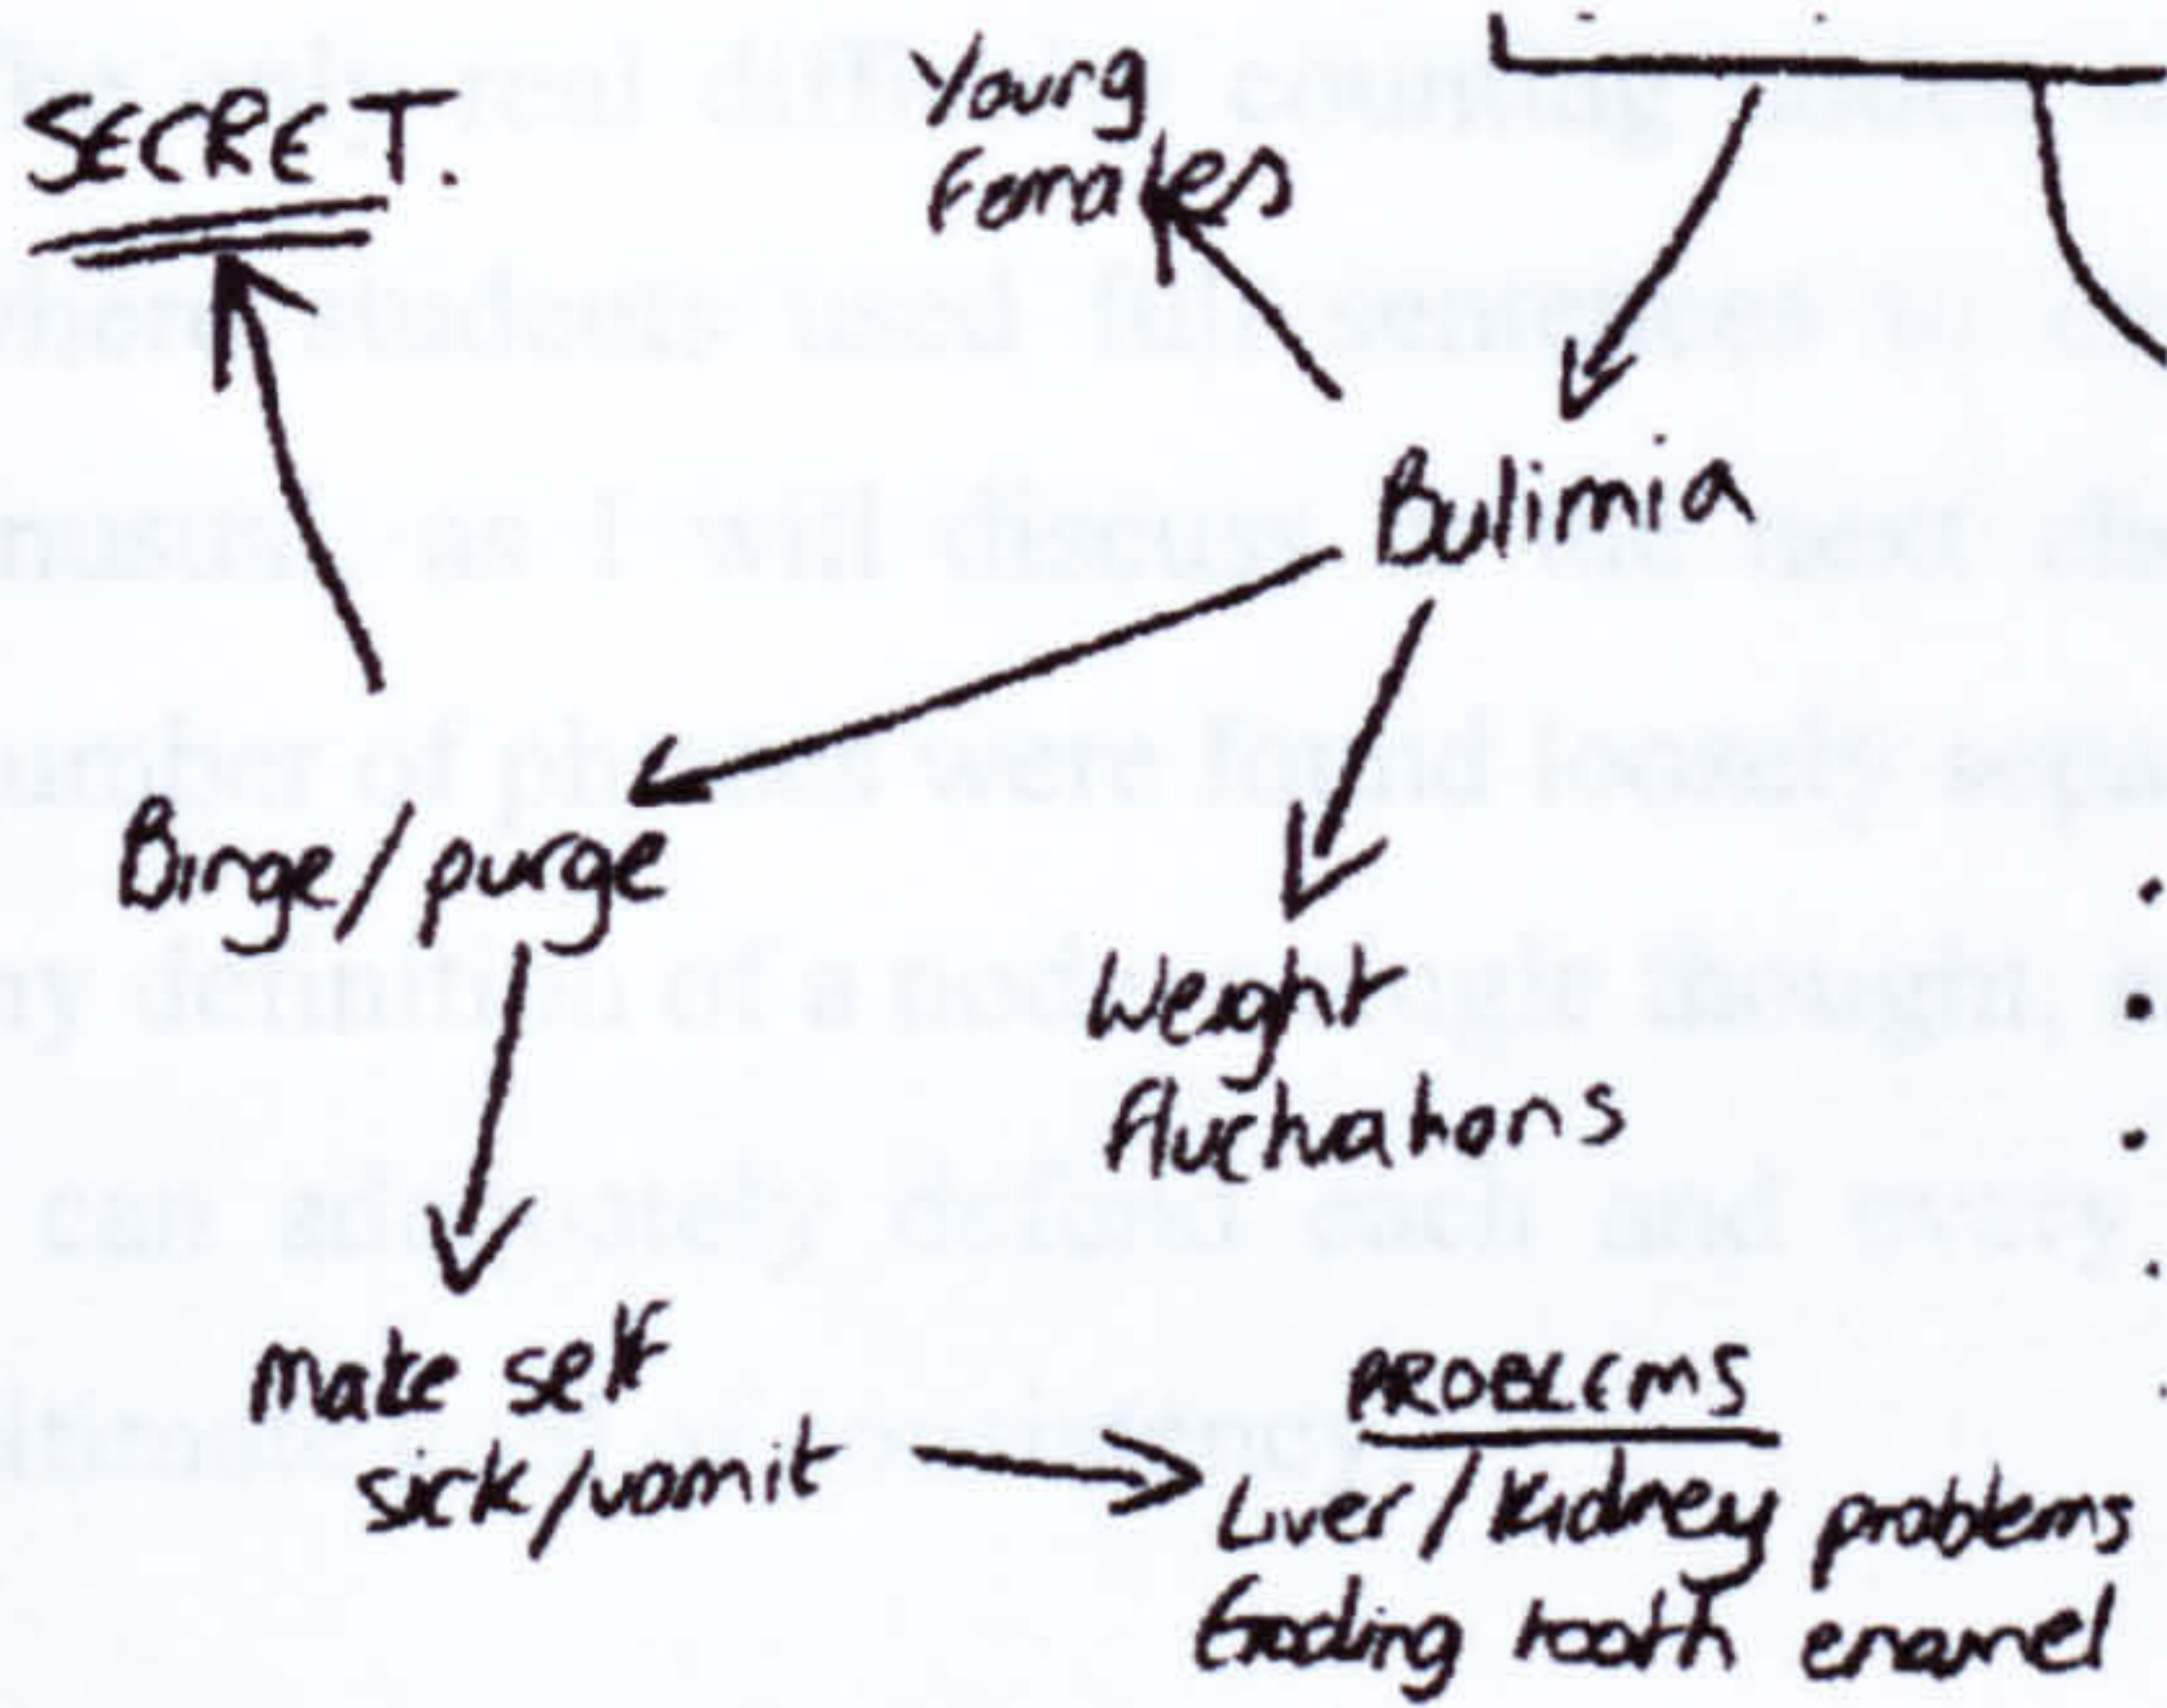 SECRET.
Young
Females
Bulimia
Binge/purge
Weight
fluctuations
Make self
sick/vomit
PROBLEMS
Liver/Kidney problems
Eroding tooth enamel